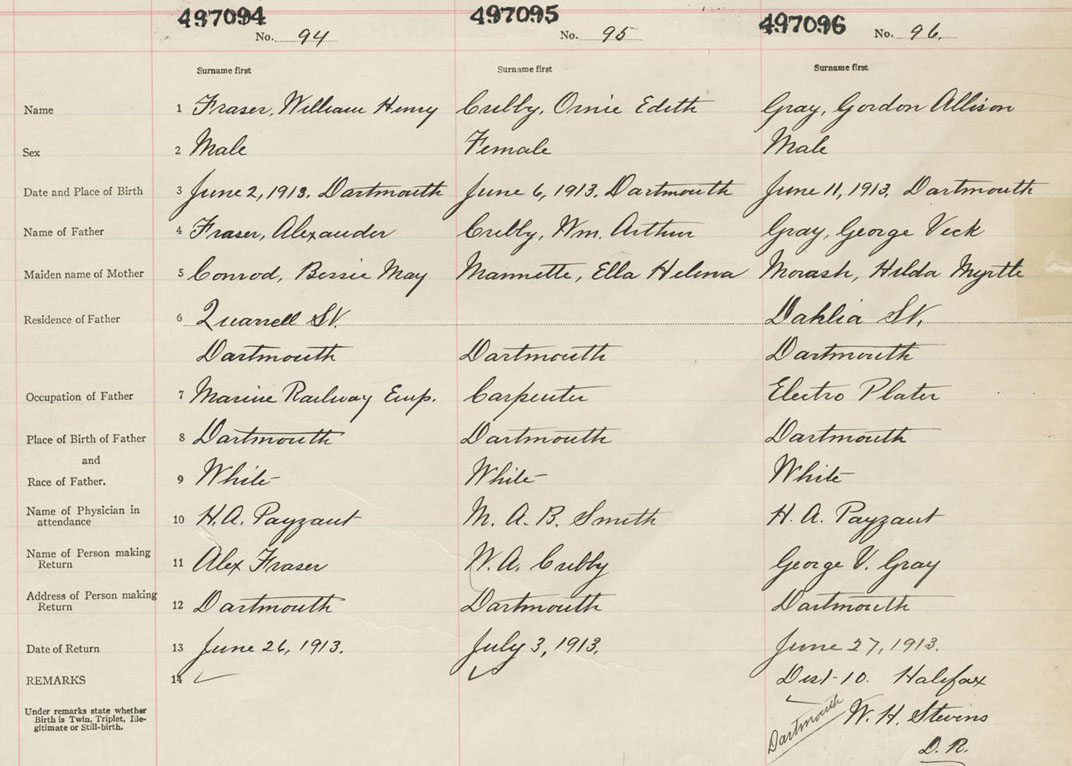 497094 No. 94 497095 No. 95 497096 No. 96.
Surname first Surname first Surname first
Name 1 Fraser, William Henry Cribby, Ornie Edith Gray, Gordon Allison
Sex 2 Male Female Male
Date and Place of Birth 3 June 2, 1913. Dartmouth June 6, 1913. Dartmouth June 11, 1913, Dartmouth
Name of Father 4 Fraser, Alexander Cribby, Wm. Arthur Gray, George Veck
Maiden name of Mother 5 Conrod, Bessie May Mannette, Ella Helena Morash, Hilda Myrtle
Residence of Father 6 Quarrell St. Dahlia St,
Dartmouth Dartmouth Dartmouth
Occupation of Father 7 Marine Railway Emp. Carpenter Electro Plater
Place of Birth of Father 8 Dartmouth Dartmouth Dartmouth
and
Race of Father. 9 White White White
Name of Physician in attendance 10 H. A. Payzant M. A. B. Smith H. A. Payzant
Name of Person making Return 11 Alex Fraser W. A. Cribby George V. Gray
Address of Person making Return 12 Dartmouth Dartmouth Dartmouth
Date of Return 13 June 26, 1913. July 3, 1913. June 27, 1913.
REMARKS 14 Dist-10. Halifax
Under remarks state whether
Birth is Twin, Triplet, Ille-
gitimate or Still-birth.
Dartmouth W. H. Stevens
D. R.